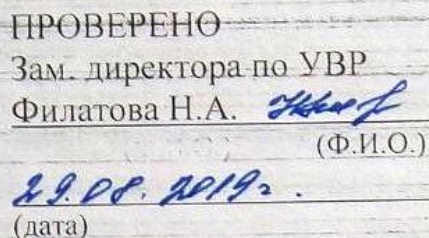 ПРОВЕРЕНО
Зам. директора по УВР
Филатова Н.А.
(Ф.И.О.)
29.08.2019г.
(дата)